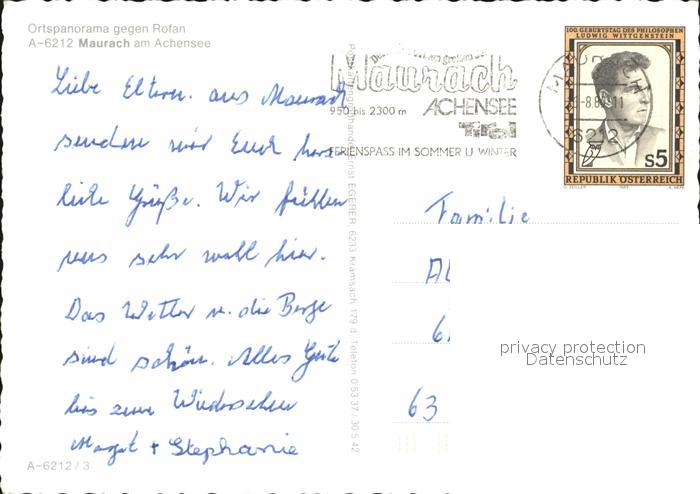 Ortspanorama gegen Rofan
A-6212 Maurach am Achensee
Liebe Eltern. aus Maurach
senden wir Euch herz
liche Grüße. Wir fühlen
uns sehr wohl hier.
Das Wetter u. die Berge
sind schön. Alles Gute
bis zum Wiedersehen
Margot + Stephanie
A-6212/3
EGERER, 6233 Kramsach 179 d. Telefon 0 53 37 / 30 5 42
Maurach
950 bis 2300 m ACHENSEE
Tirol
FERIENSPASS IM SOMMER U WINTER
6212
100. GEBURTSTAG DES PHILOSOPHEN
LUDWIG WITTGENSTEIN
S5
REPUBLIK ÖSTERREICH
Familie
63
privacy protection
Datenschutz